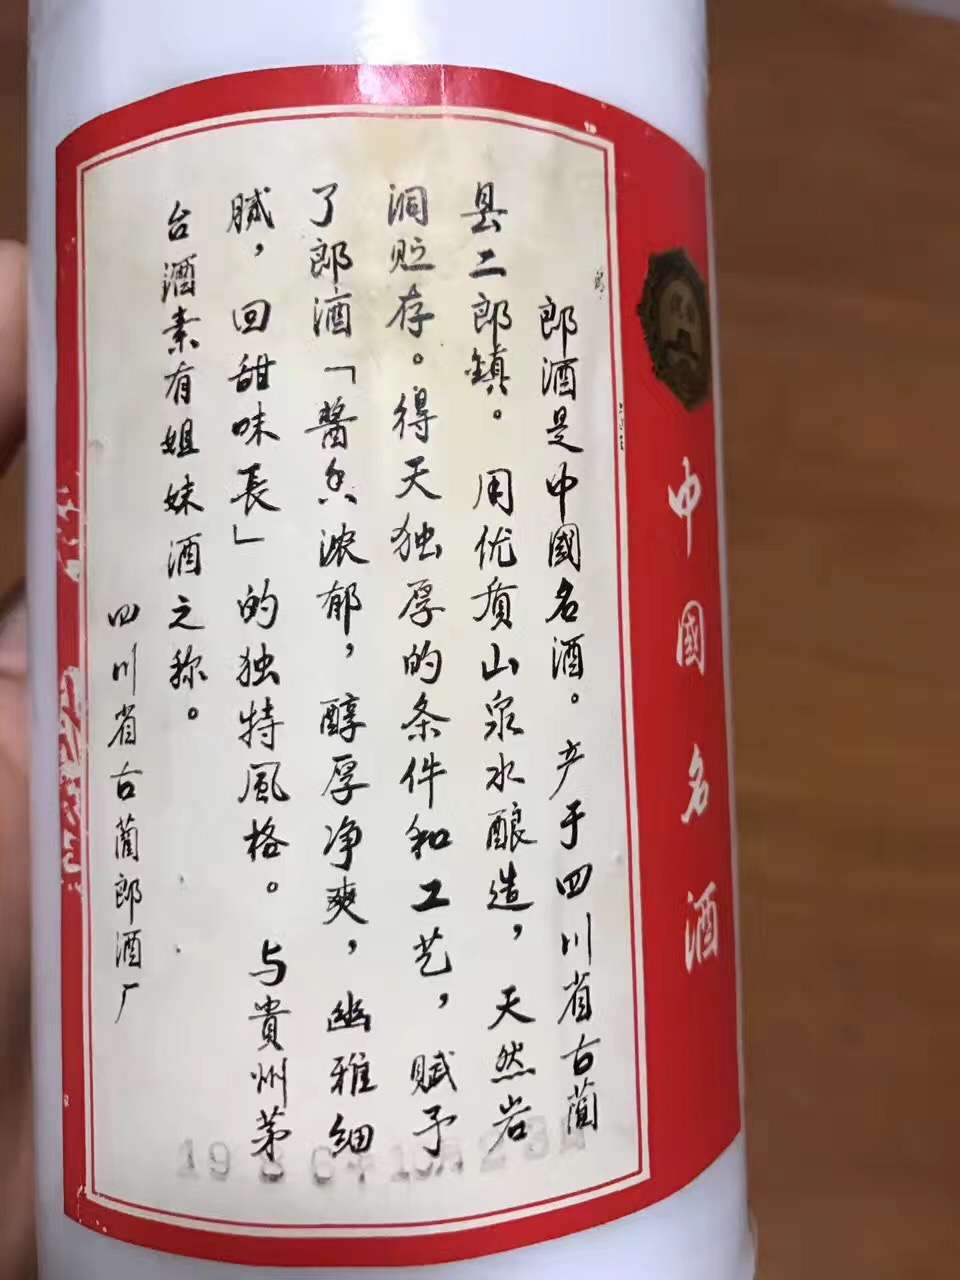 中國名酒
郎酒是中國名酒。产于四川省古蔺
县二郎鎮。用优质山泉水酿造，天然岩
洞贮存。得天独厚的条件和工艺，赋予
了郎酒「醬香浓郁，醇厚净爽，幽雅细
腻，回甜味長」的独特風格。与貴州茅
台酒素有姐妹酒之称。
四川省古蔺郎酒厂